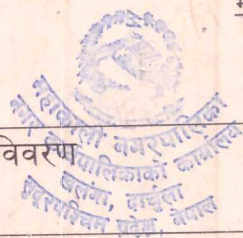 महाकाली नगरपालिका
नगर कार्यपालिकाको कार्यालय
खलंगा, दार्चुला
सुदूरपश्चिम प्रदेश, नेपाल
विवरण